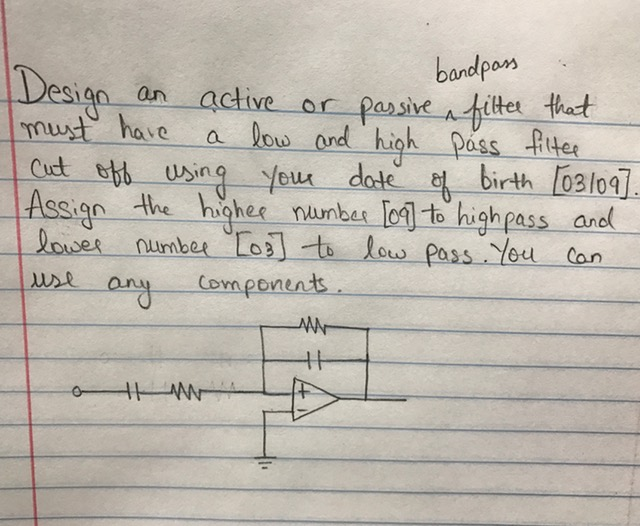 bandpass
Design an active or passive ^ filter that
must have a low and high pass filter
cut off using your date of birth [03/09].
Assign the higher number [09] to highpass and
lower number [03] to low pass. You can
use any components.
+
-